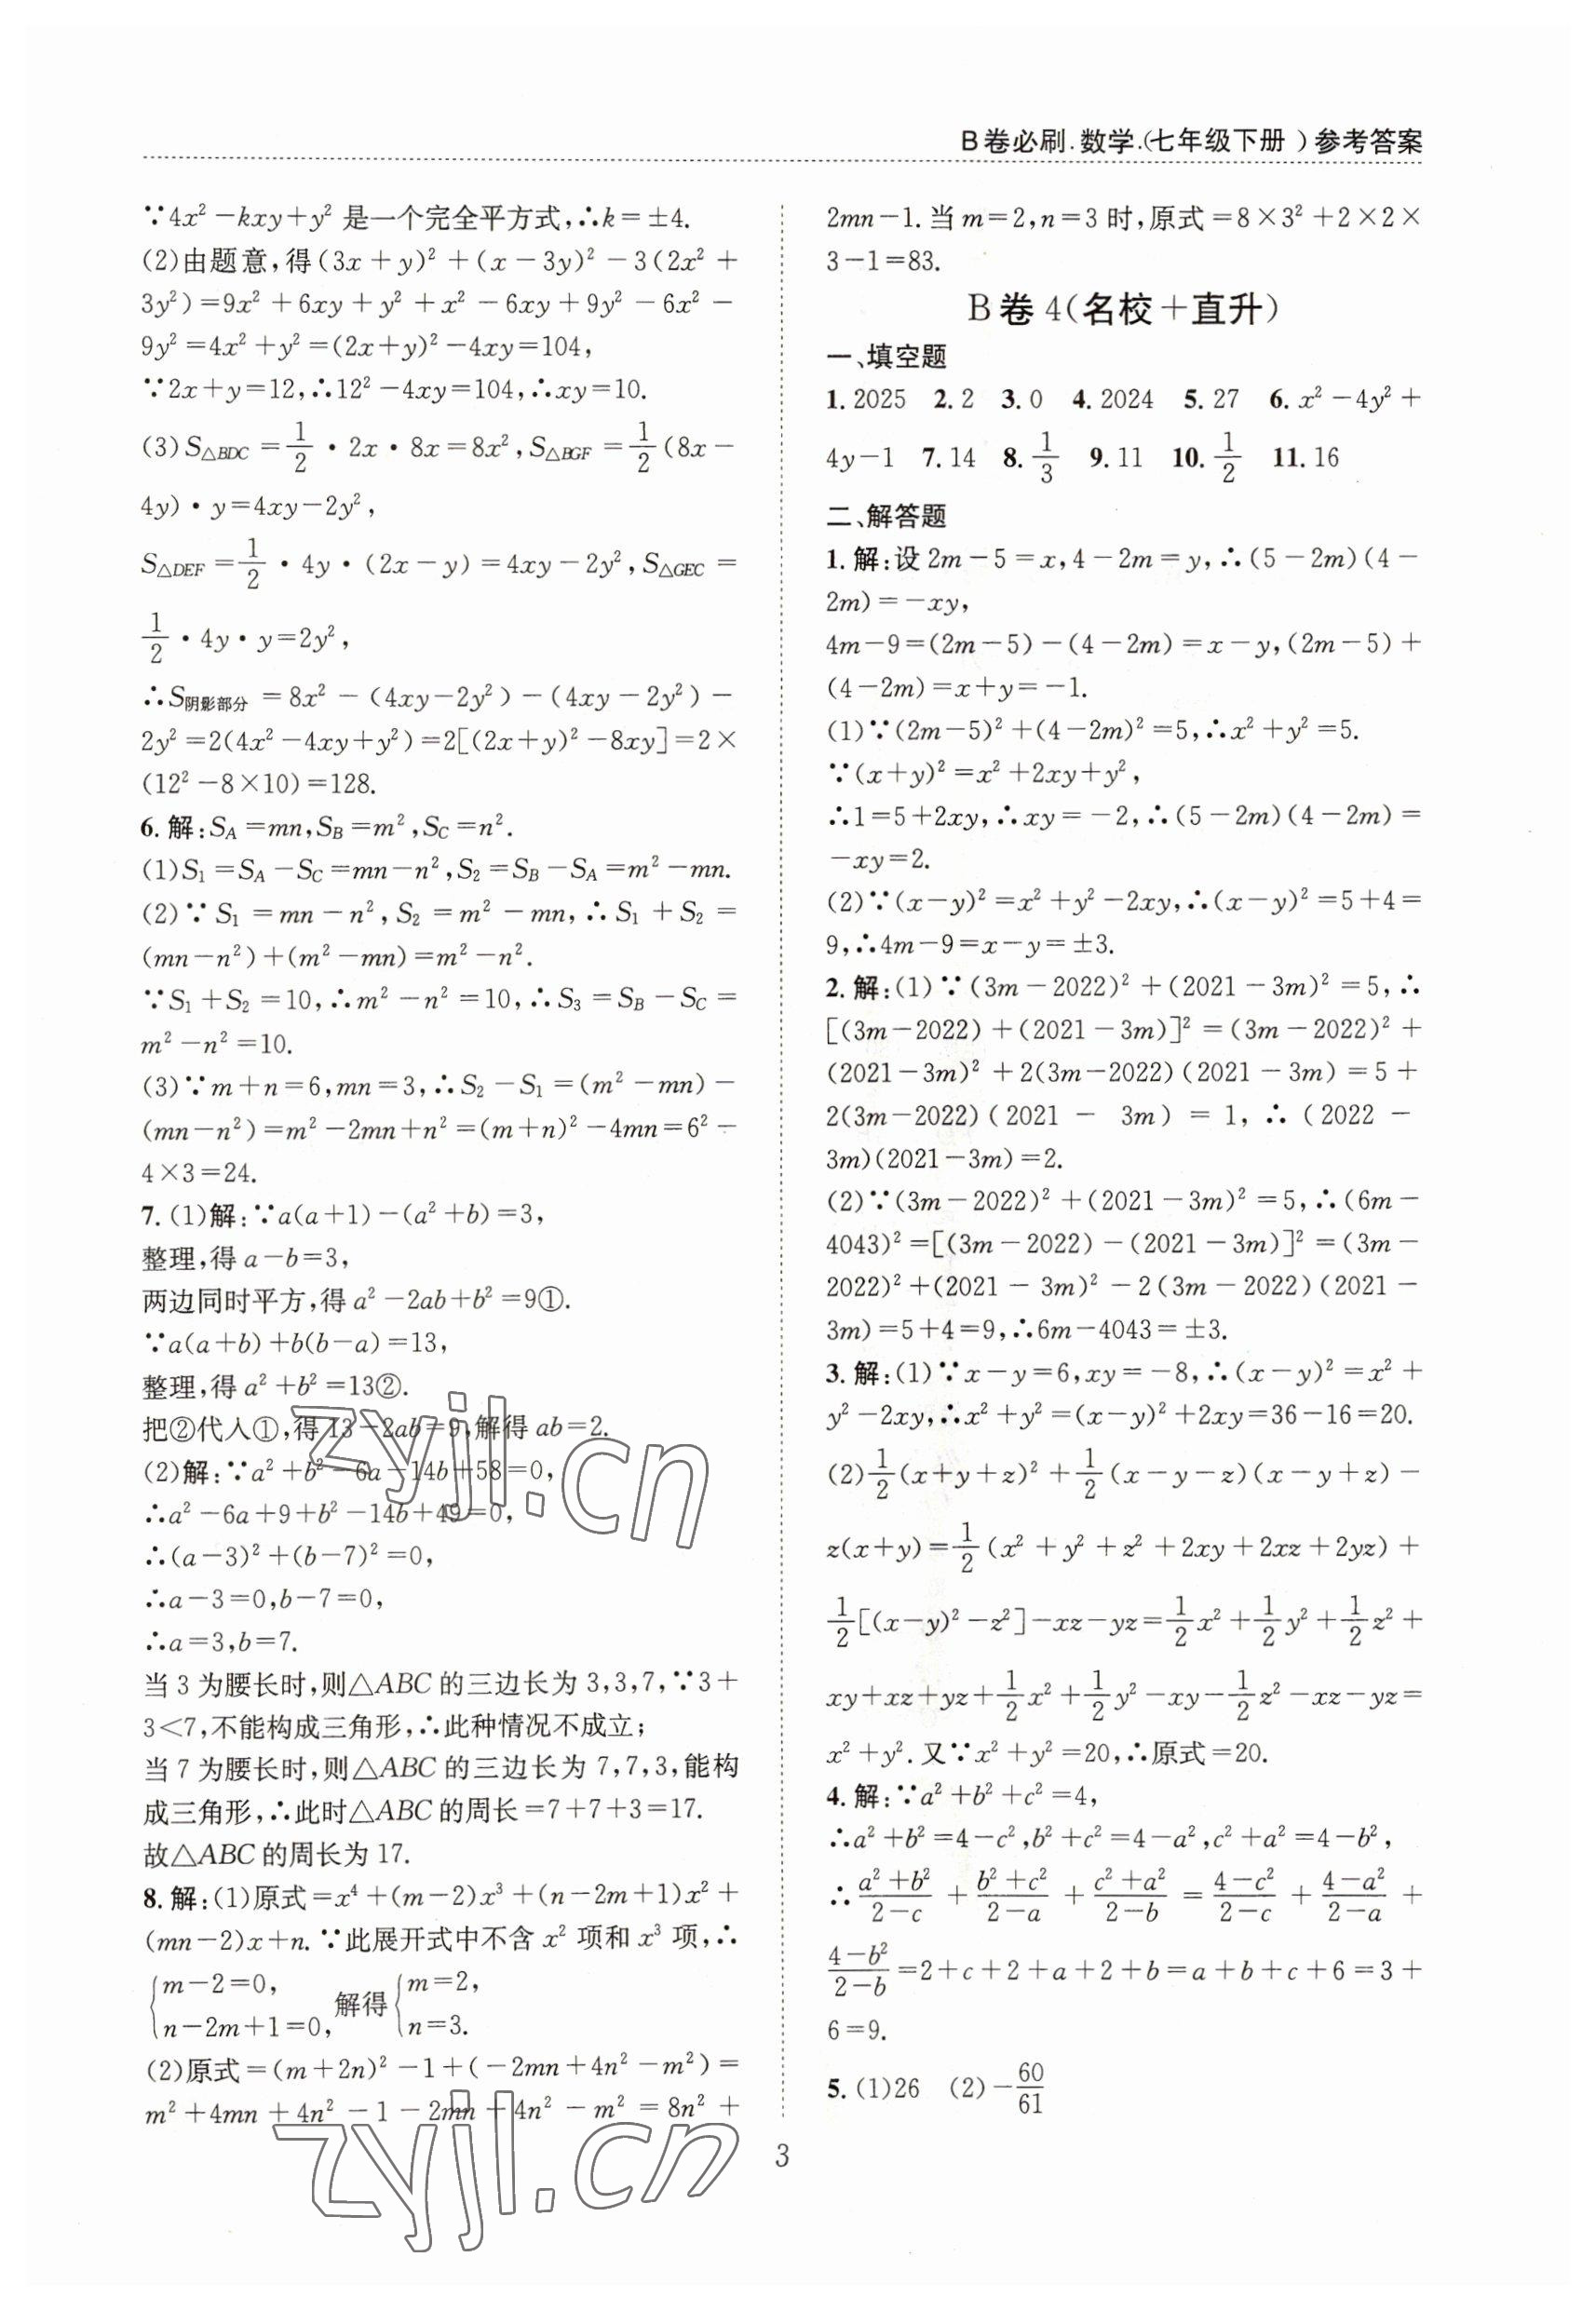 B卷必刷.数学.(七年级下册 )参考答案
∵4x²-kxy+y² 是一个完全平方式,∴k=±4.
(2)由题意,得(3x+y)²+(x-3y)²-3(2x²+
3y²)=9x²+6xy+y²+x²-6xy+9y²-6x²-
9y²=4x²+y²=(2x+y)²-4xy=104,
∵2x+y=12,∴12²-4xy=104,∴xy=10.
(3)S△BDC=1/2·2x·8x=8x²,S△BGF=1/2(8x-
4y)·y=4xy-2y²,
S△DEF=1/2·4y·(2x-y)=4xy-2y²,S△GEC=
1/2·4y·y=2y²,
∴S阴影部分=8x²-(4xy-2y²)-(4xy-2y²)-
2y²=2(4x²-4xy+y²)=2[(2x+y)²-8xy]=2×
(12²-8×10)=128.
6.解:S_A=mn,S_B=m²,S_C=n².
(1)S₁=S_A-S_C=mn-n²,S₂=S_B-S_A=m²-mn.
(2)∵S₁=mn-n²,S₂=m²-mn,∴S₁+S₂=
(mn-n²)+(m²-mn)=m²-n².
∵S₁+S₂=10,∴m²-n²=10,∴S₃=S_B-S_C=
m²-n²=10.
(3)∵m+n=6,mn=3,∴S₂-S₁=(m²-mn)-
(mn-n²)=m²-2mn+n²=(m+n)²-4mn=6²-
4×3=24.
7.(1)解:∵a(a+1)-(a²+b)=3,
整理,得a-b=3,
两边同时平方,得a²-2ab+b²=9①.
∵a(a+b)+b(b-a)=13,
整理,得a²+b²=13②.
把②代人①,得13-2ab=9,解得ab=2.
(2)解:∵a²+b²-6a-14b+58=0,
∴a²-6a+9+b²-14b+49=0,
∴(a-3)²+(b-7)²=0,
∴a-3=0,b-7=0,
∴a=3,b=7.
当3为腰长时,则△ABC的三边长为3,3,7,∵3+
3<7,不能构成三角形,∴此种情况不成立;
当7为腰长时,则△ABC的三边长为7,7,3,能构
成三角形,∴此时△ABC的周长=7+7+3=17.
故△ABC的周长为17.
8.解:(1)原式=x⁴+(m-2)x³+(n-2m+1)x²+
(mn-2)x+n.∵此展开式中不含x²项和x³项,∴
{m-2=0, n-2m+1=0, 解得{m=2, n=3.
(2)原式=(m+2n)²-1+(-2mn+4n²-m²)=
m²+4mn+4n²-1-2mn+4n²-m²=8n²+
2mn-1.当m=2,n=3时,原式=8×3²+2×2×
3-1=83.
B卷4(名校+直升)
一、填空题
1.2025 2.2 3.0 4.2024 5.27 6.x²-4y²+
4y-1 7.14 8.1/3 9.11 10.1/2 11.16
二、解答题
1.解:设2m-5=x,4-2m=y,∴(5-2m)(4-
2m)=-xy,
4m-9=(2m-5)-(4-2m)=x-y,(2m-5)+
(4-2m)=x+y=-1.
(1)∵(2m-5)²+(4-2m)²=5,∴x²+y²=5.
∵(x+y)²=x²+2xy+y²,
∴1=5+2xy,∴xy=-2,∴(5-2m)(4-2m)=
-xy=2.
(2)∵(x-y)²=x²+y²-2xy,∴(x-y)²=5+4=
9,∴4m-9=x-y=±3.
2.解:(1)∵(3m-2022)²+(2021-3m)²=5,∴
[(3m-2022)+(2021-3m)]²=(3m-2022)²+
(2021-3m)²+2(3m-2022)(2021-3m)=5+
2(3m-2022)(2021-3m)=1,∴(2022-
3m)(2021-3m)=2.
(2)∵(3m-2022)²+(2021-3m)²=5,∴(6m-
4043)²=[(3m-2022)-(2021-3m)]²=(3m-
2022)²+(2021-3m)²-2(3m-2022)(2021-
3m)=5+4=9,∴6m-4043=±3.
3.解:(1)∵x-y=6,xy=-8,∴(x-y)²=x²+
y²-2xy,∴x²+y²=(x-y)²+2xy=36-16=20.
(2)1/2(x+y+z)²+1/2(x-y-z)(x-y+z)-
z(x+y)=1/2(x²+y²+z²+2xy+2xz+2yz)+
1/2[(x-y)²-z²]-xz-yz=1/2x²+1/2y²+1/2z²+
xy+xz+yz+1/2x²+1/2y²-xy-1/2z²-xz-yz=
x²+y².又∵x²+y²=20,∴原式=20.
4.解:∵a²+b²+c²=4,
∴a²+b²=4-c²,b²+c²=4-a²,c²+a²=4-b²,
∴(a²+b²)/(2-c)+(b²+c²)/(2-a)+(c²+a²)/(2-b)=(4-c²)/(2-c)+(4-a²)/(2-a)+
(4-b²)/(2-b)=2+c+2+a+2+b=a+b+c+6=3+
6=9.
5.(1)26 (2)-60/61
3
zyjl.cn
zyjl.cn